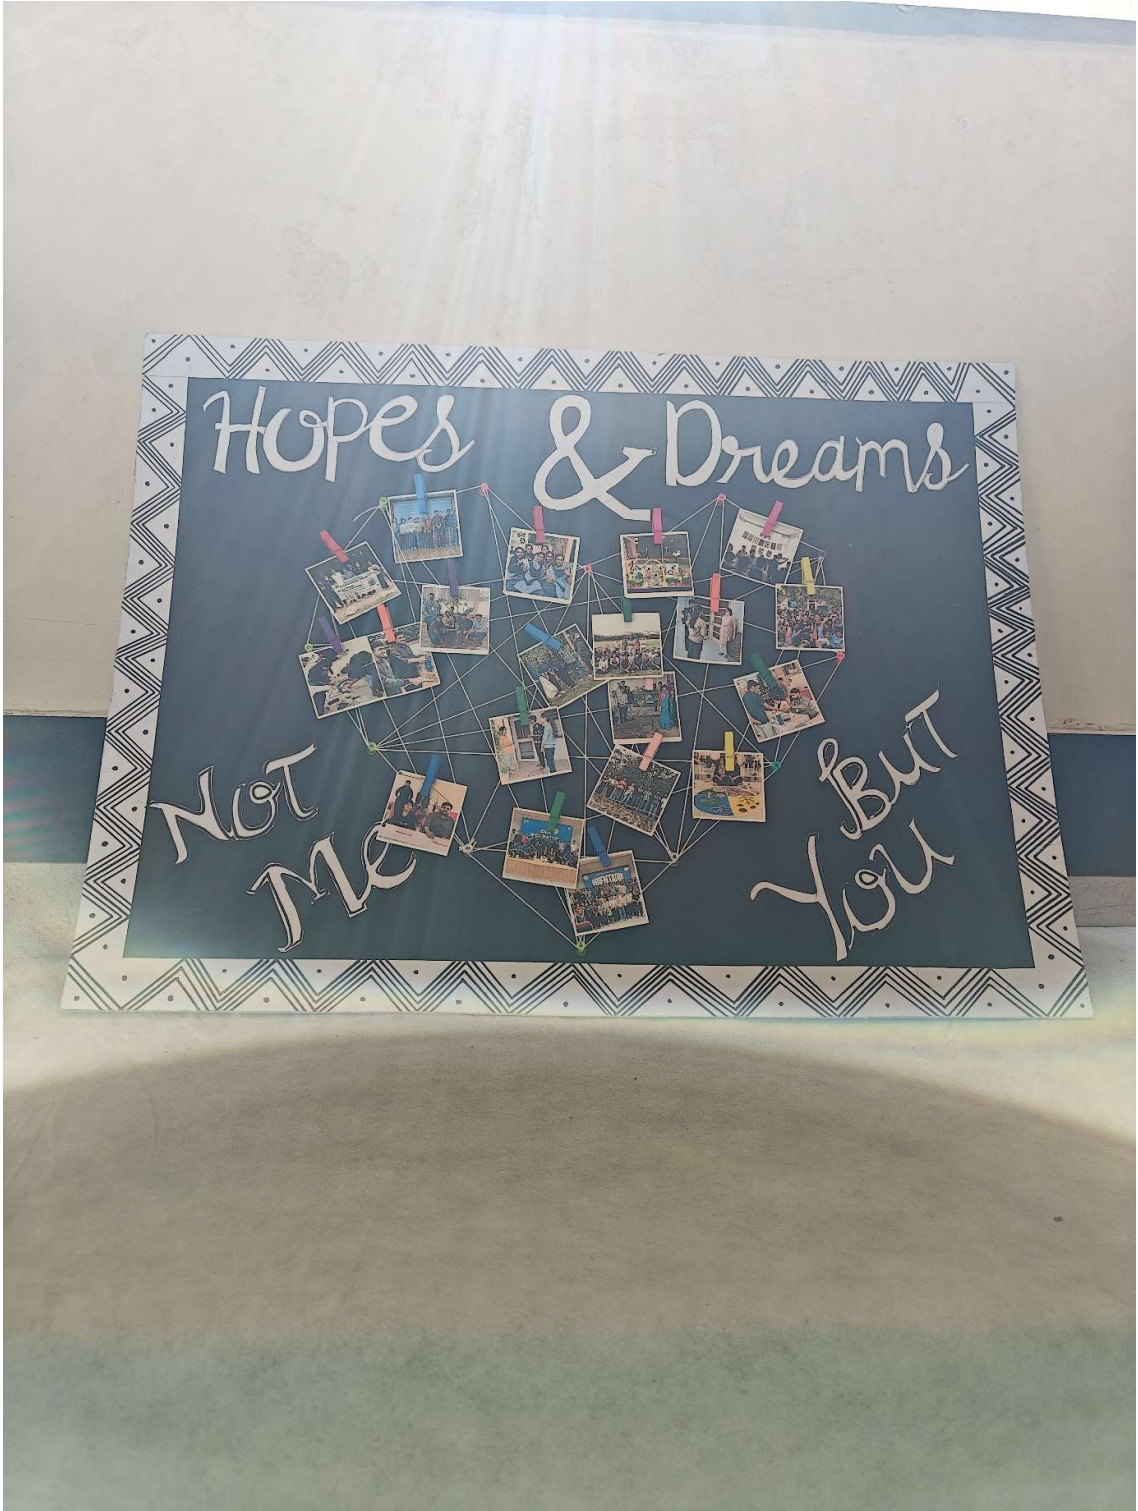 Hopes & Dreams
Not
Me
But
You